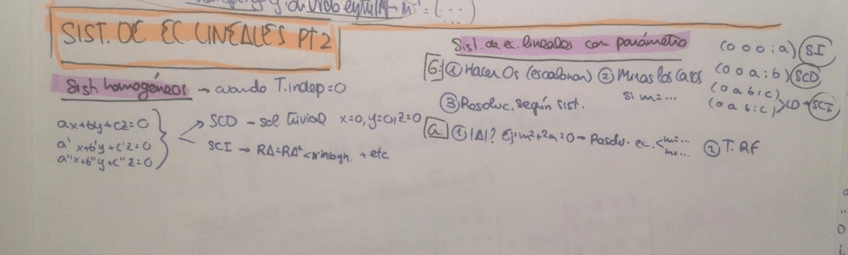 SIST. DE EC. LINEALES PT2
Sist. homogéneos → cuando T.indep=0
ax+by+cz=0
a'x+b'y+c'z=0
a''x+b''y+c''z=0
SCD → sol trivial x=0, y=0, z=0
SCI → RA=RA* < nº incógn. + etc
Sist. de ec. lineales con parámetro
G: ① Hacer 0s (escalonar) ② Miras los casos
si m=...
③ Resolver, según sist.
(0 0 0 : a) SI
(0 0 a : b) SCD
(0 a b : c)
(0 a b : c) LD → SCI
① |A|? Ej: m²+2m=0 → Resolv. ec. < m=...
m=...
② T. RF